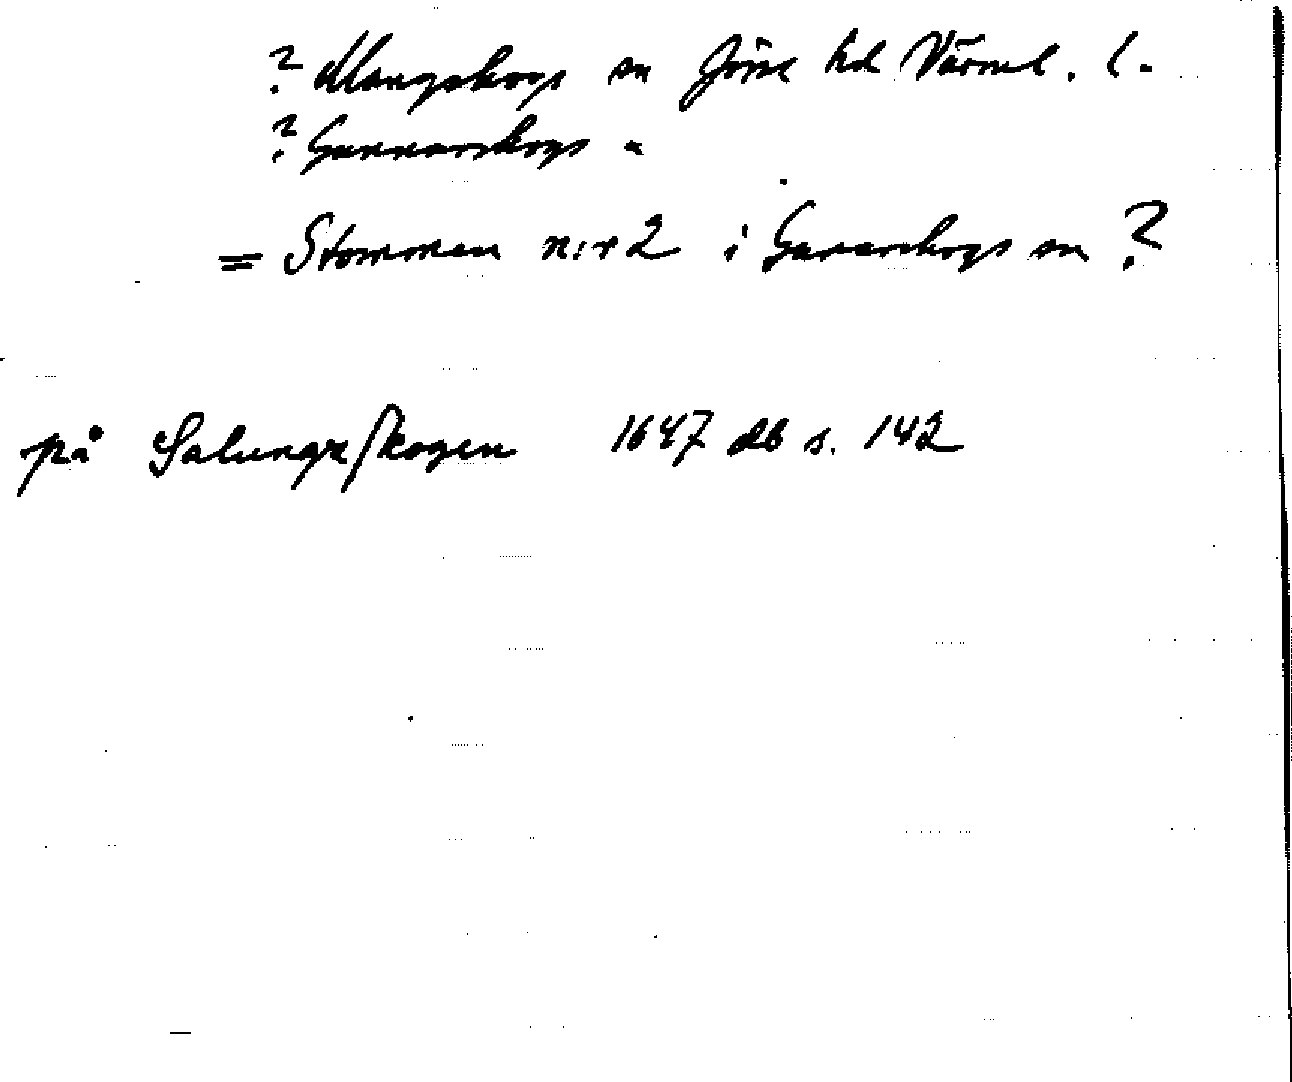 ? Mangskogs sn Jösse hd Värml. l.
? Gunnarskogs "
= Stommen n:r 2 i Gunnarskogs sn ?
på Salungzskogen 1647 db s. 142